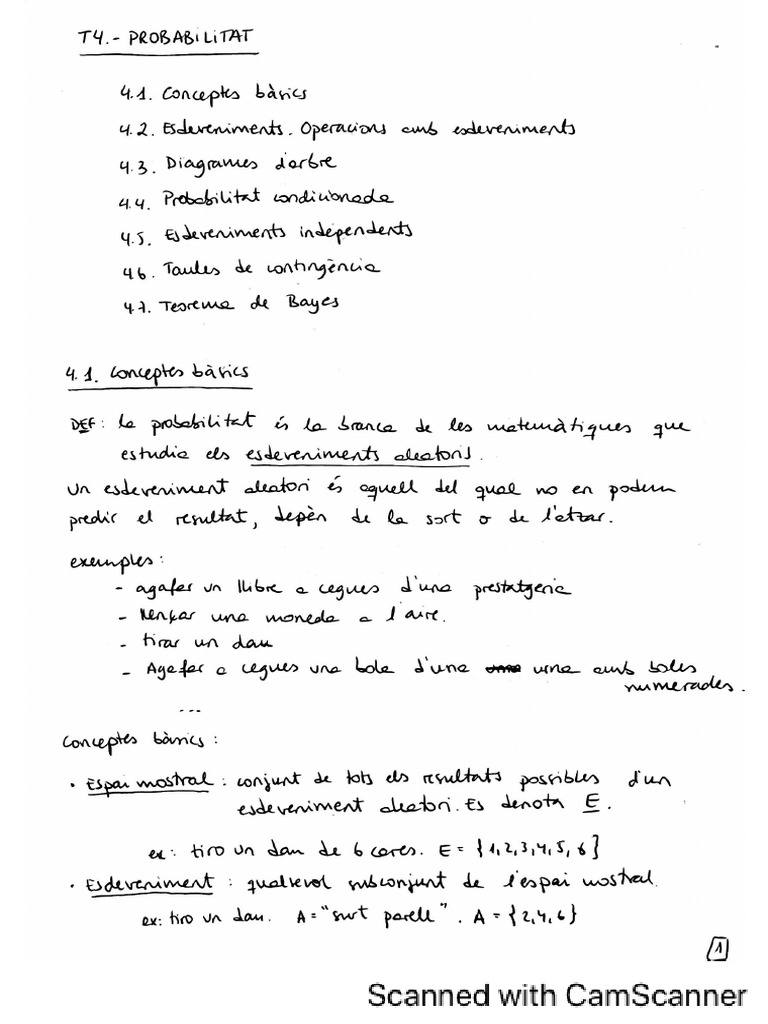 T4.- PROBABILITAT
4.1. Conceptes bàsics
4.2. Esdeveniments. Operacions amb esdeveniments
4.3. Diagrames d'arbre
4.4. Probabilitat condicionada
4.5. Esdeveniments independents
4.6. Taules de contingència
4.7. Teorema de Bayes
4.1. Conceptes bàsics
DEF: la probabilitat és la branca de les matemàtiques que
estudia els esdeveniments aleatoris.
Un esdeveniment aleatori és aquell del qual no en podem
predir el resultat, depèn de la sort o de l'atzar.
exemples:
- agafar un llibre a cegues d'una prestatgeria
- Llençar una moneda a l'aire.
- tirar un dau
- Agafar a cegues una bola d'una urna amb boles
numerades.
...
Conceptes bàsics:
• Espai mostral: conjunt de tots els resultats possibles d'un
esdeveniment aleatori. Es denota E.
ex: tiro un dau de 6 cares. E = {1,2,3,4,5,6}
• Esdeveniment: qualsevol subconjunt de l'espai mostral.
ex: tiro un dau. A = "surt parell". A = {2,4,6}
1
Scanned with CamScanner